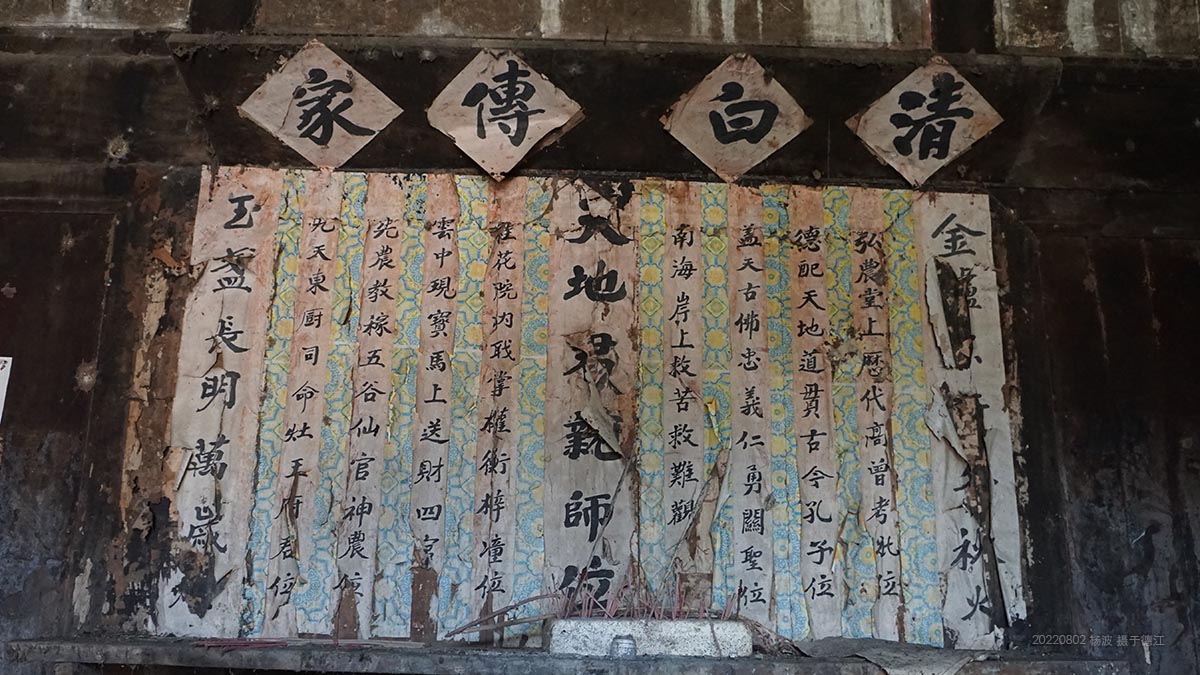 清白傳家
金爐不秋火
弘農堂上歷代高曾考妣位
德配天地道貫古今孔子位
盖天古佛忠義仁勇關聖位
南海岸上救苦救難觀
天地君親師位
桂花院内职掌權衡梓潼位
雲中現寶馬上送財四官
先農教稼五谷仙官神農位
九天東厨司命灶王府君位
玉盏長明萬歲
20220802 杨波 摄于德江